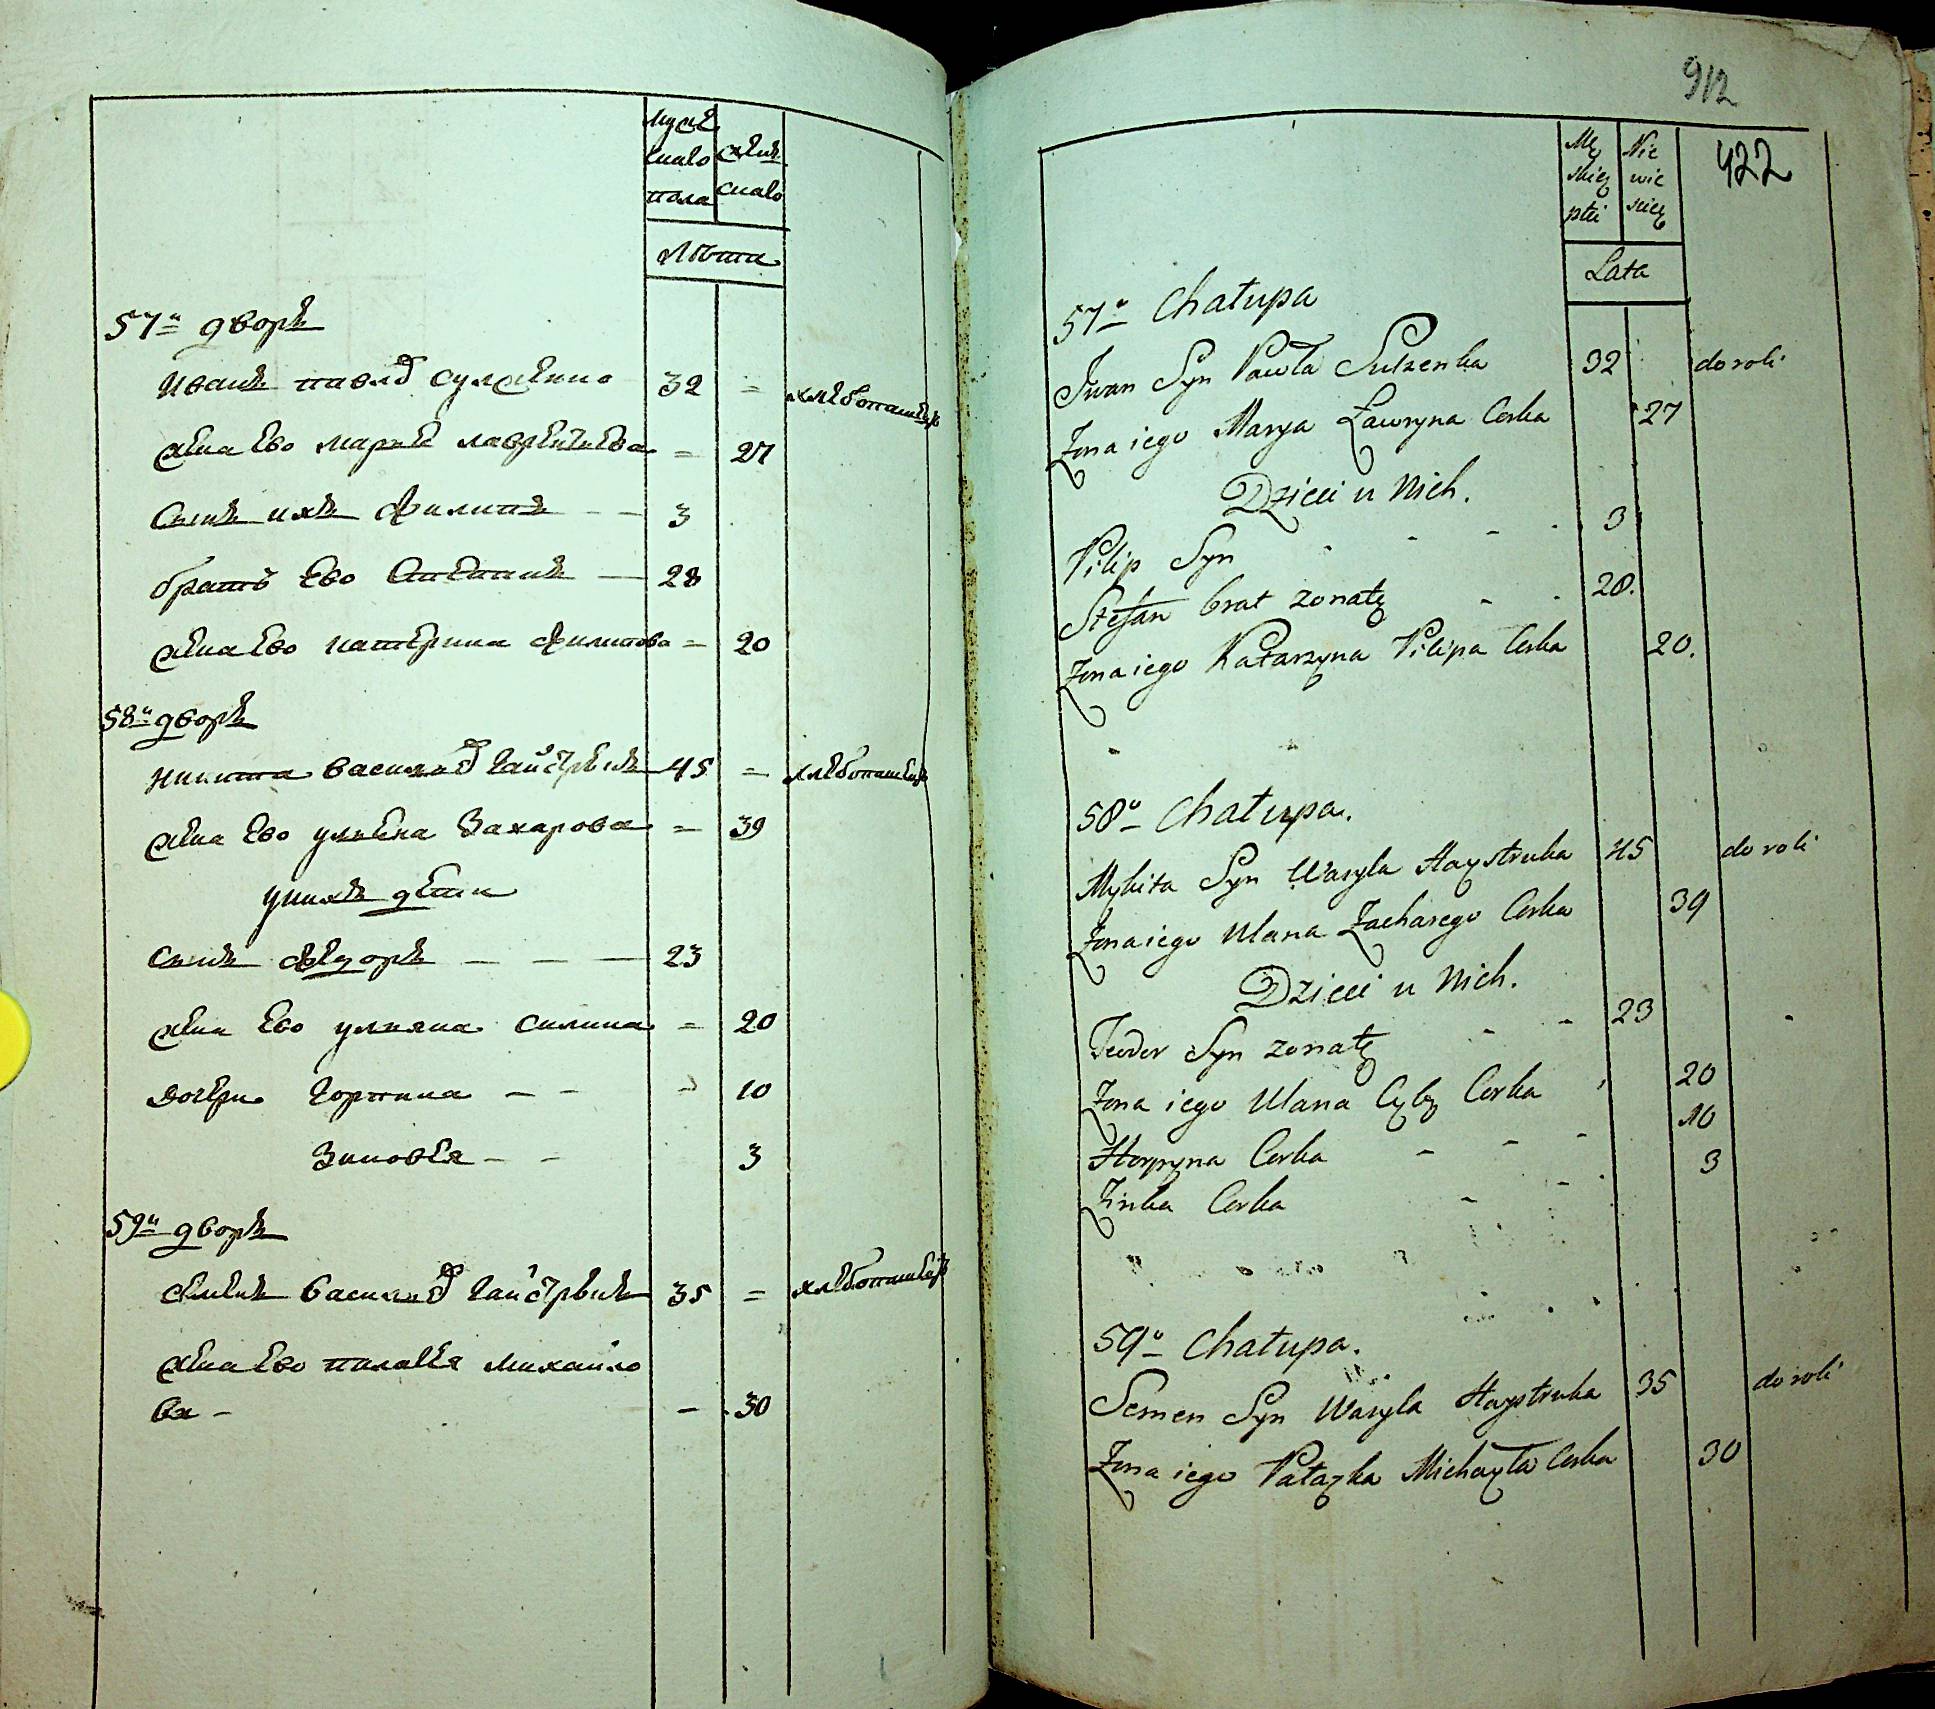 муже
скаго
пола
жен
скаго
Лѣта
57й дворъ
Иванъ павлов сулженко 32 = хлебопашець
жена Ево марья лаврентиева = 27
Сынъ ихъ Филипъ — — 3
братъ Ево Степанъ — 28
жена Ево катерина Филипова = 20
58й дворъ
никита василиев гайструкъ 45 = хлебопашець
жена Ево улияна Захарова = 39
унихъ дети
Сынъ Федоръ — — — 23
жена Ево улияна Силина = 20
дочери горпина — — - 10
Зиновея — — 3
59й дворъ
семенъ василиев гайструкъ 35 = хлебопашець
жена Ево палагея михайло
ва - - 30
912
422
Mę
skiey
płci
Nie
wie
skiey
Lata
57o Chałupa
Jwan Syn Pawła Sulzenka 32 do roli
Żona iego Marya Ławryna Corka 27
Dzieci u Nich.
Pilip Syn - - - - 3
Stefan brat żonaty - - 28.
Żona iego Katarzyna Pilipa Corka 20.
58o Chałupa.
Mykita Syn Wasyla Haystruka 45 do roli
Żona iego Ulana Zacharego Corka 39
Dzieci u Nich.
Teodor Syn żonaty - - 23
Żona iego Ulana Cyby Corka 20
Horpyna Corka - - - 10
Zinka Corka - - 3
59o Chałupa.
Semen Syn Wasyla Haystruka 35 do roli
Żona iego Pałazka Michayła Corka 30